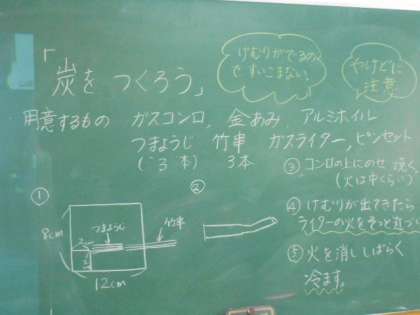 「炭を つくろう」
けむりがでるので
すいこまない
やけどに
注意
用意するもの ガスコンロ, 金あみ, アルミホイル
つまようじ 竹串 ガスライター, ピンセット
(3本) 3本
③ コンロの上にのせ 焼く
(火は中くらい)
④ けむりが出てきたら
ライターの火をそっと
⑤ 火を消ししばらく
冷ます。
①
8cm
つまようじ
竹串
12cm
②